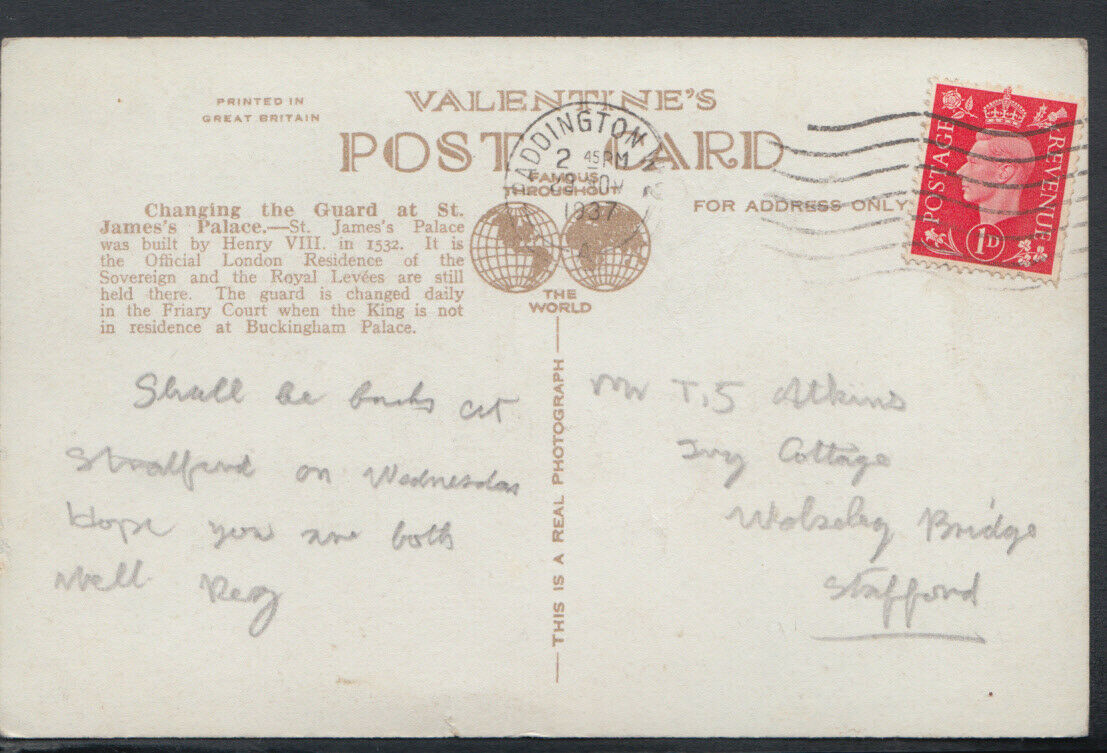 PRINTED IN
GREAT BRITAIN
VALENTINE'S
POST CARD
ADDINGTON
2 45 PM
1937
FAMOUS
THROUGHOUT
THE
WORLD
FOR ADDRESS ONLY
POSTAGE
REVENUE
1D
Changing the Guard at St.
James's Palace.—St. James's Palace
was built by Henry VIII. in 1532. It is
the Official London Residence of the
Sovereign and the Royal Levées are still
held there. The guard is changed daily
in the Friary Court when the King is not
in residence at Buckingham Palace.
Shall be back at
on Wednesday
Hope you are both
well Reg
THIS IS A REAL PHOTOGRAPH
Mr T.S Atkins
Ivy Cottage
Wolseley Bridge
Stafford